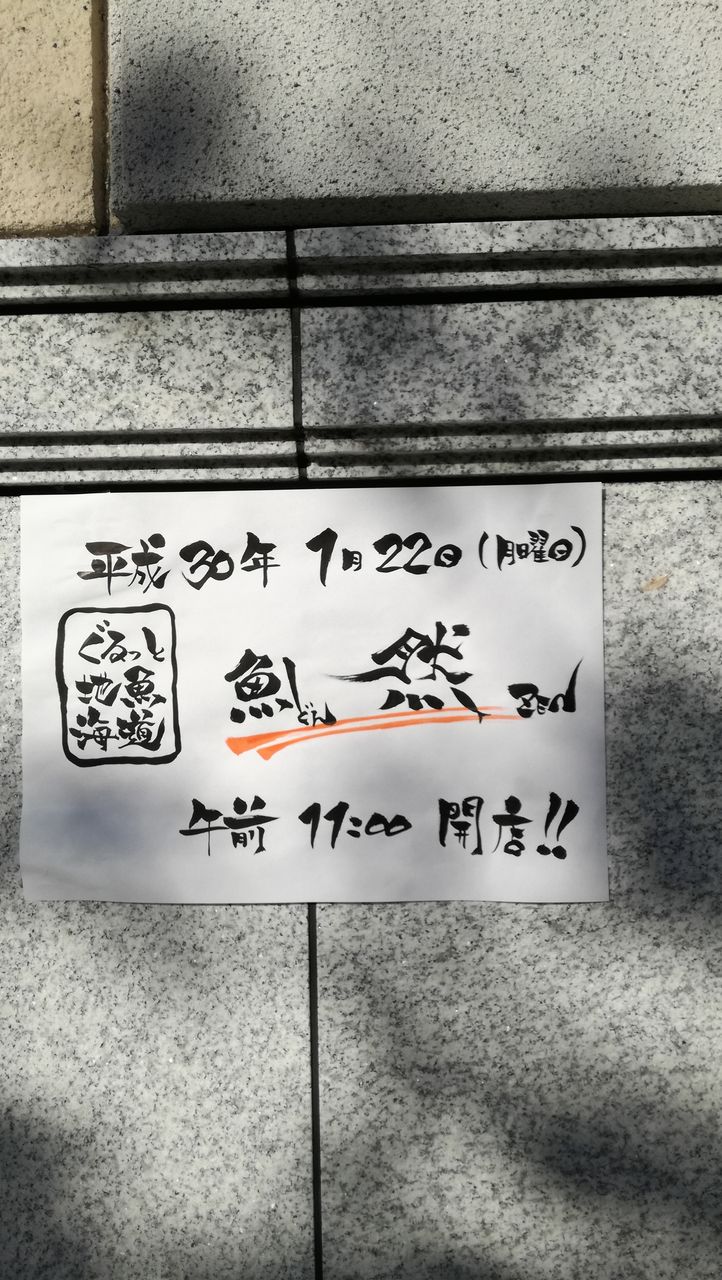 平成30年 1月22日(月曜日)
ぐるっと
地魚
海道
魚どん 然 ZEN
午前 11:00 開店!!